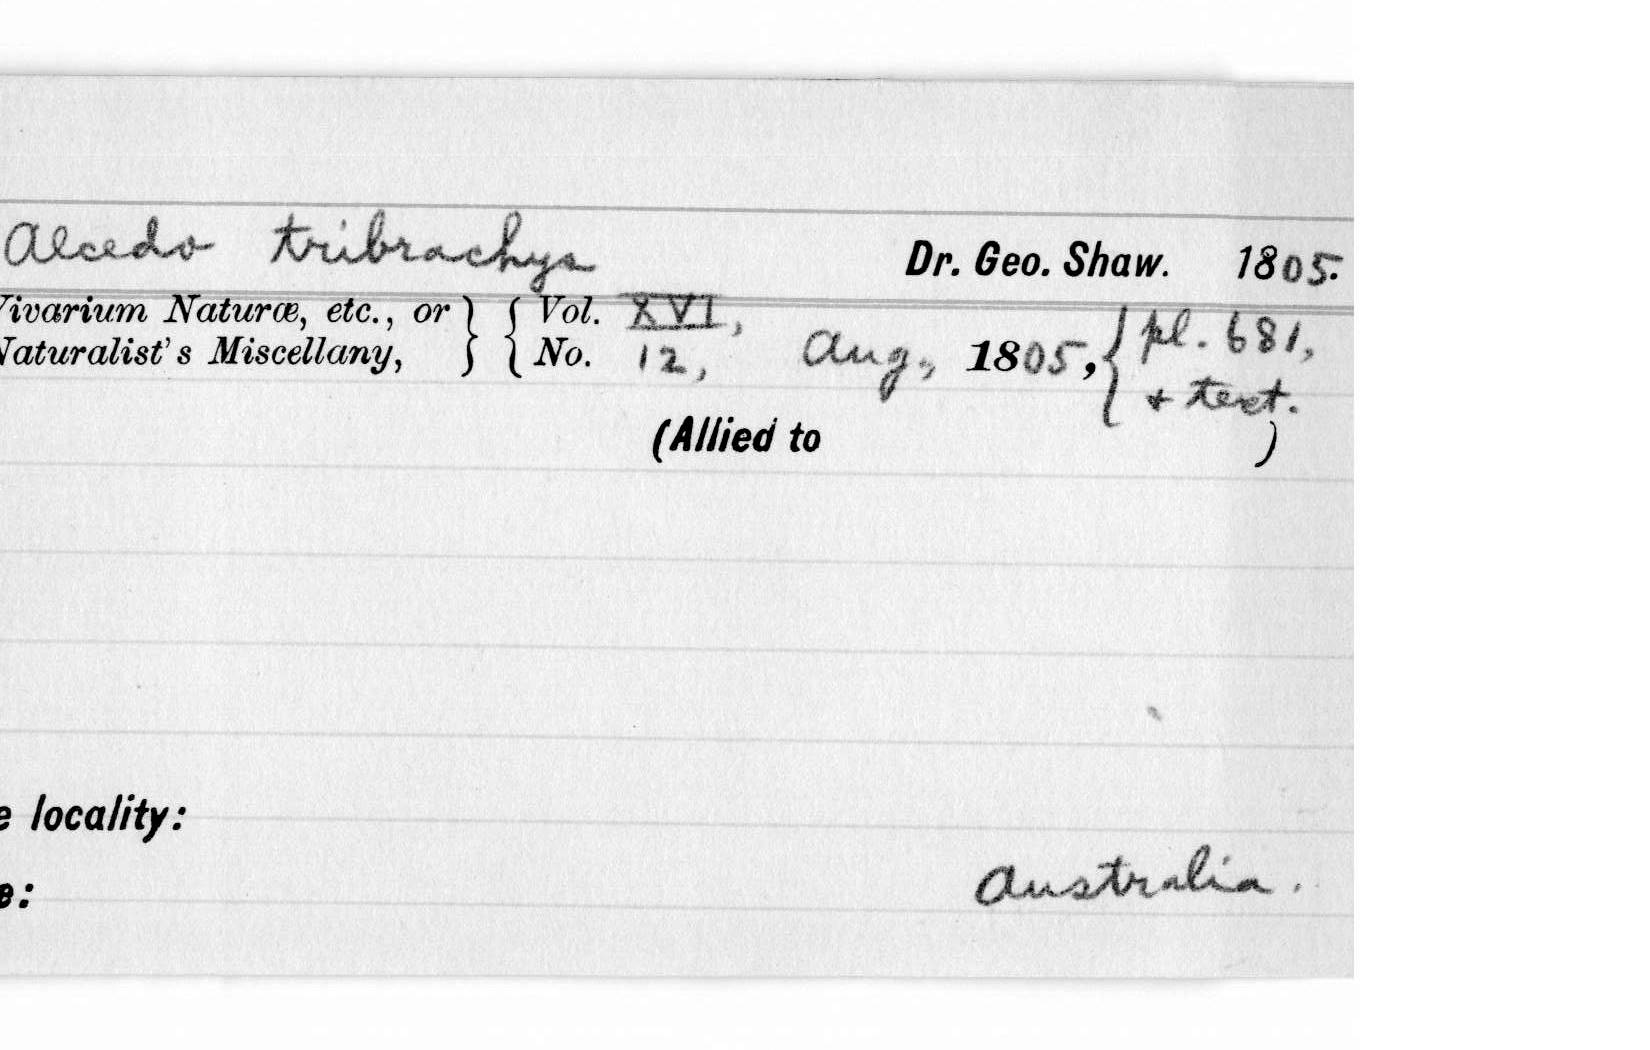 Alcedo tribrachys Dr. Geo. Shaw. 1805.
Vivarium Naturæ, etc., or } { Vol. XVI,
Naturalist's Miscellany, } { No. 12, Aug., 1805, { pl. 681,
+ text.
(Allied to )
e locality:
e: Australia.